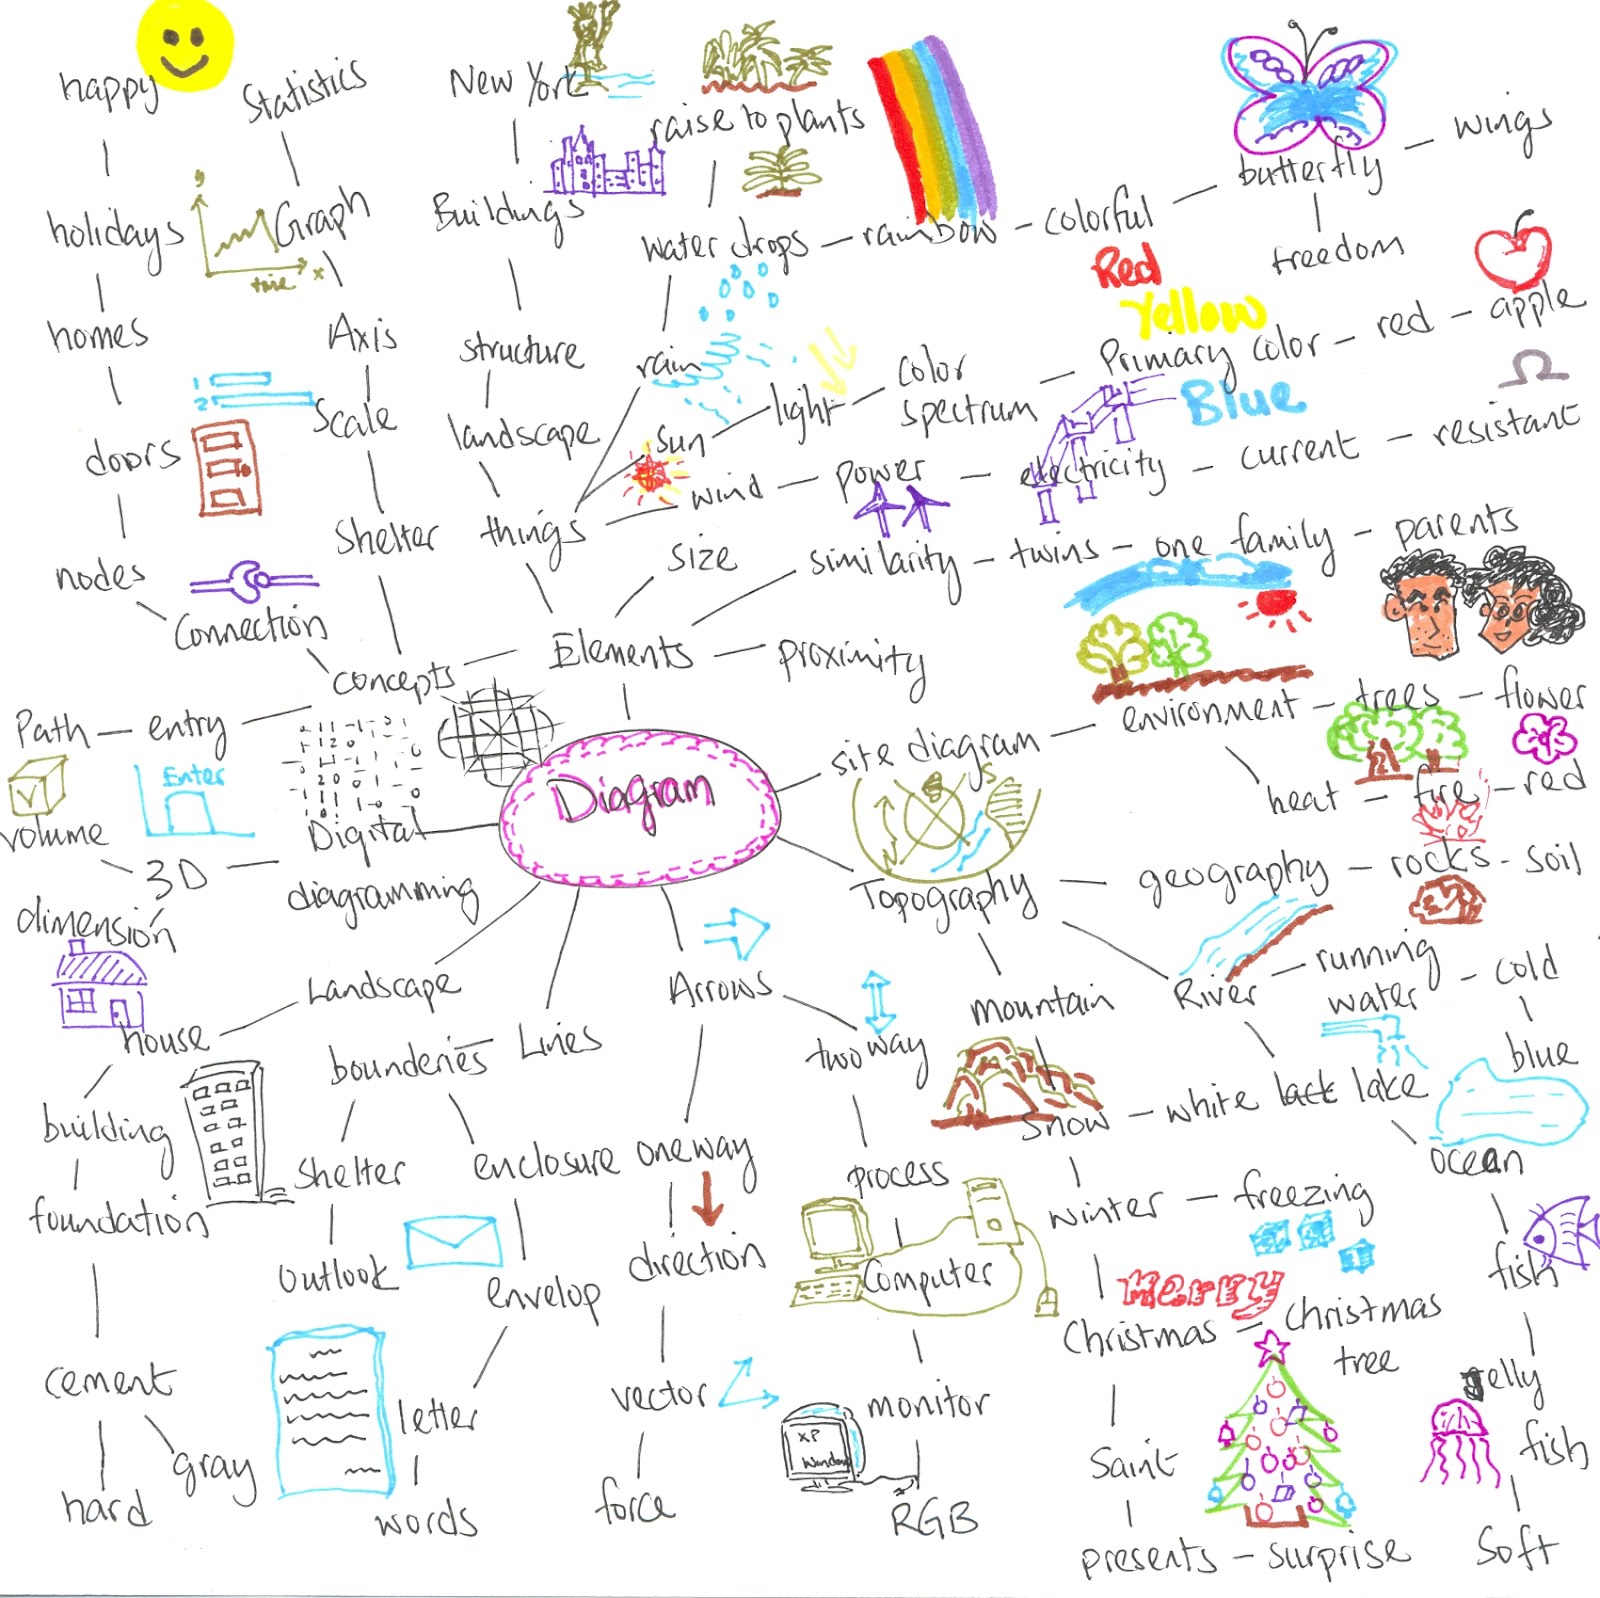 happy
Statistics
New York
raise to plants
wings
butterfly
holidays
y
Graph
time x
Buildings
water drops
rainbow
colorful
freedom
Red
Yellow
homes
Axis
structure
rain
light
color
spectrum
Primary color
red
apple
Blue
1
2
Scale
doors
landscape
sun
wind
power
electricity
current
resistant
Shelter
things
size
similarity
twins
one family
parents
nodes
Connection
concepts
Elements
proximity
Path
entry
site diagram
environment
trees
flower
Enter
Diagram
heat
fire
red
volume
3D
Digital
diagramming
Topography
geography
rocks
soil
dimension
Landscape
Arrows
mountain
River
running
water
cold
house
bounderies
Lines
two way
blue
building
Snow
white
lack lake
Shelter
enclosure
one way
process
ocean
foundation
winter
freezing
outlook
envelop
direction
Computer
fish
Merry
Christmas
Christmas
tree
cement
letter
vector
monitor
XP
Window
jelly
fish
gray
Saint
hard
words
force
RGB
presents
surprise
Soft